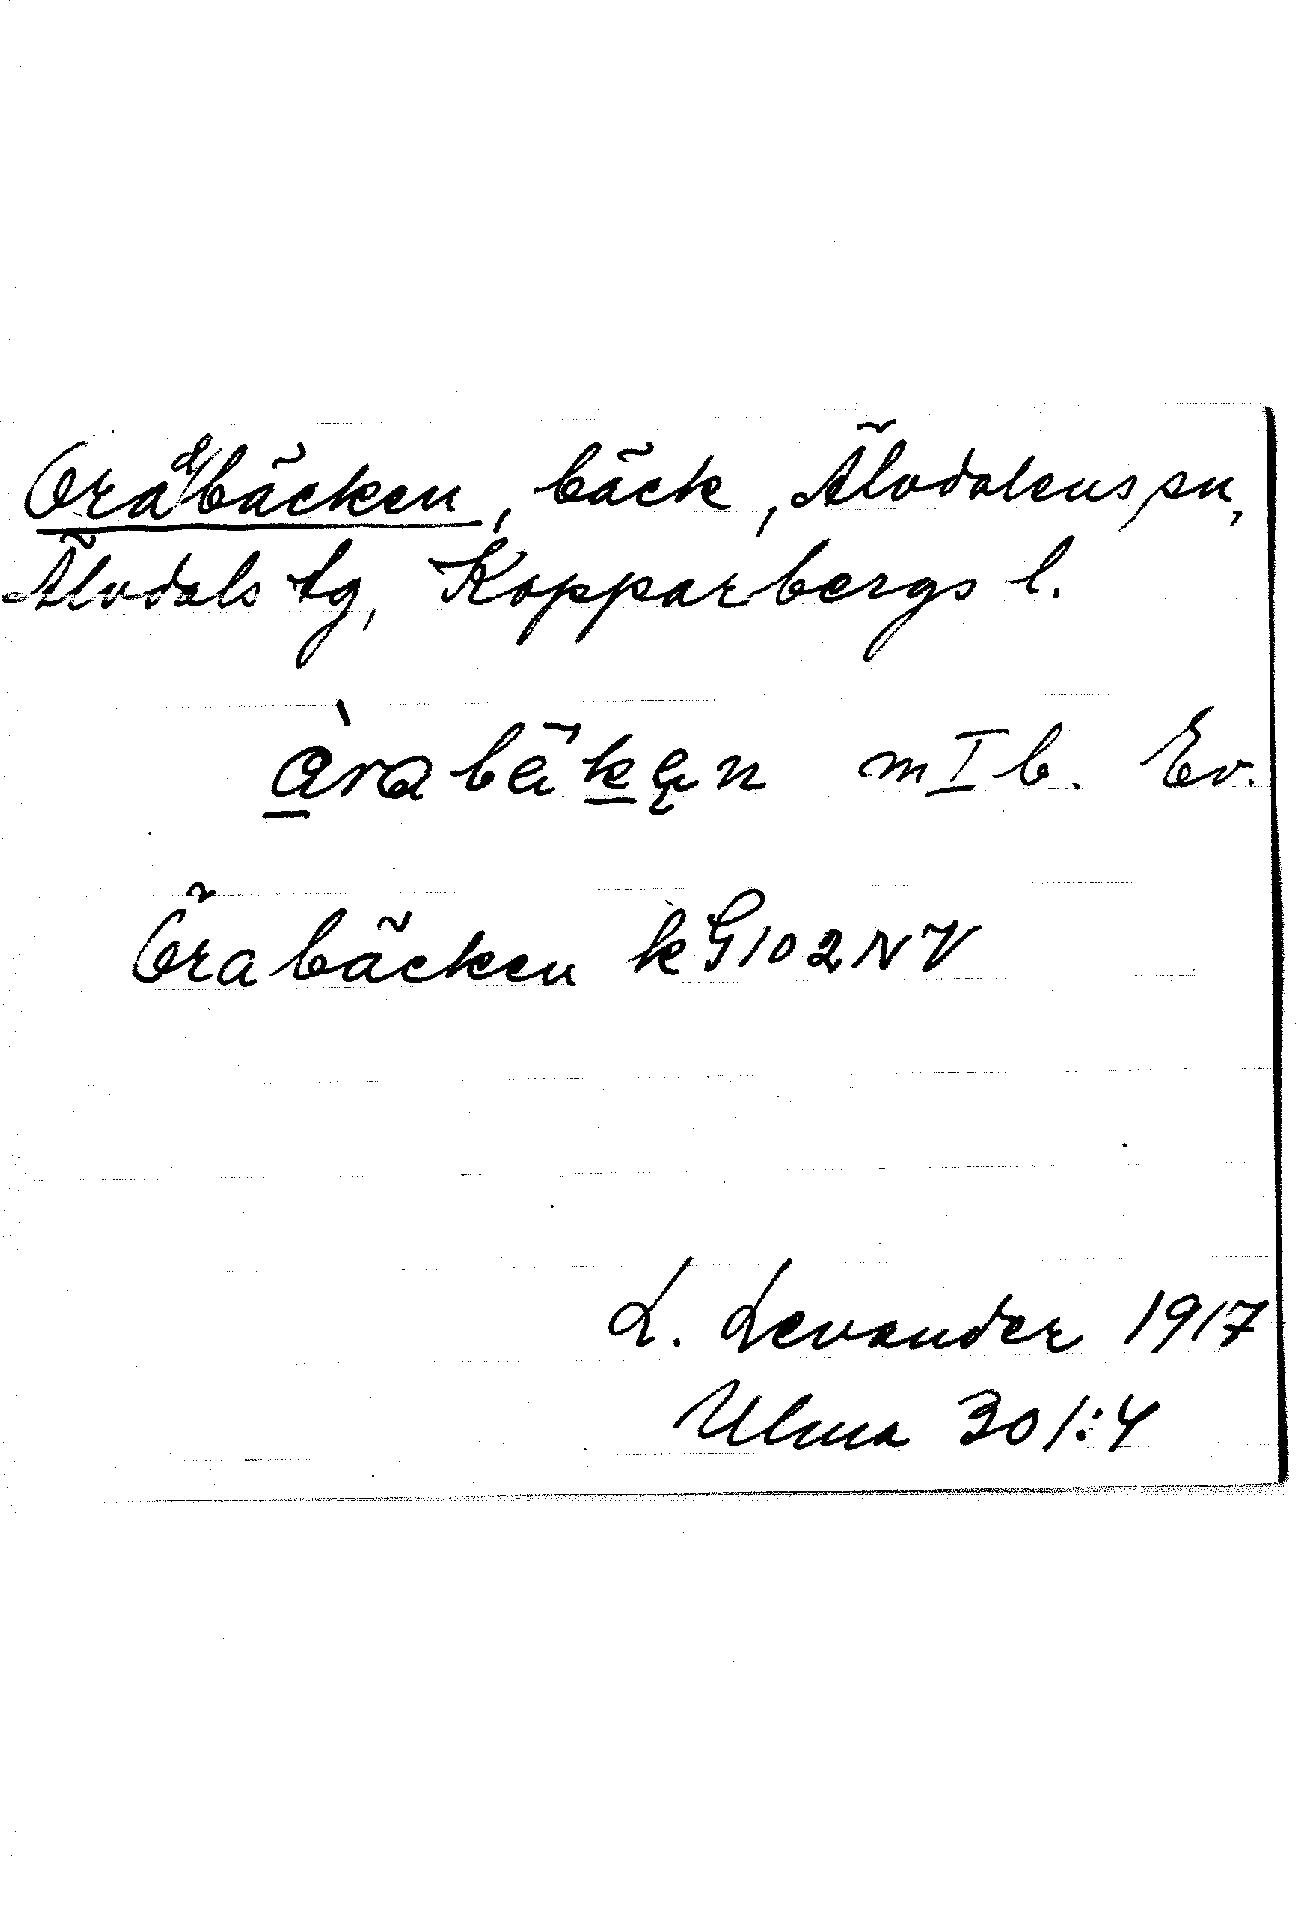 Oraåbäcken, bäck, Älvdalens sn,
Älvdals tg, Kopparbergs l.
àrabäkęn m I b. Ev.
Örabäcken kG102NV
L. Levander 1917
Ulma 301:4